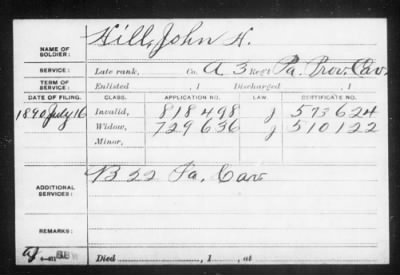 NAME OF SOLDIER: Hill, John H.
SERVICE: Late rank, Co. A 3 Reg't Pa. Prov. Cav.
TERM OF SERVICE: Enlisted , 1 Discharged , 1
DATE OF FILING. CLASS. APPLICATION NO. LAW. CERTIFICATE NO.
1890 July 16 Invalid, 818498 J 573624
Widow, 729636 J 510122
Minor,
ADDITIONAL SERVICES: B 22 Pa. Cav
REMARKS:
Died , 1 , at